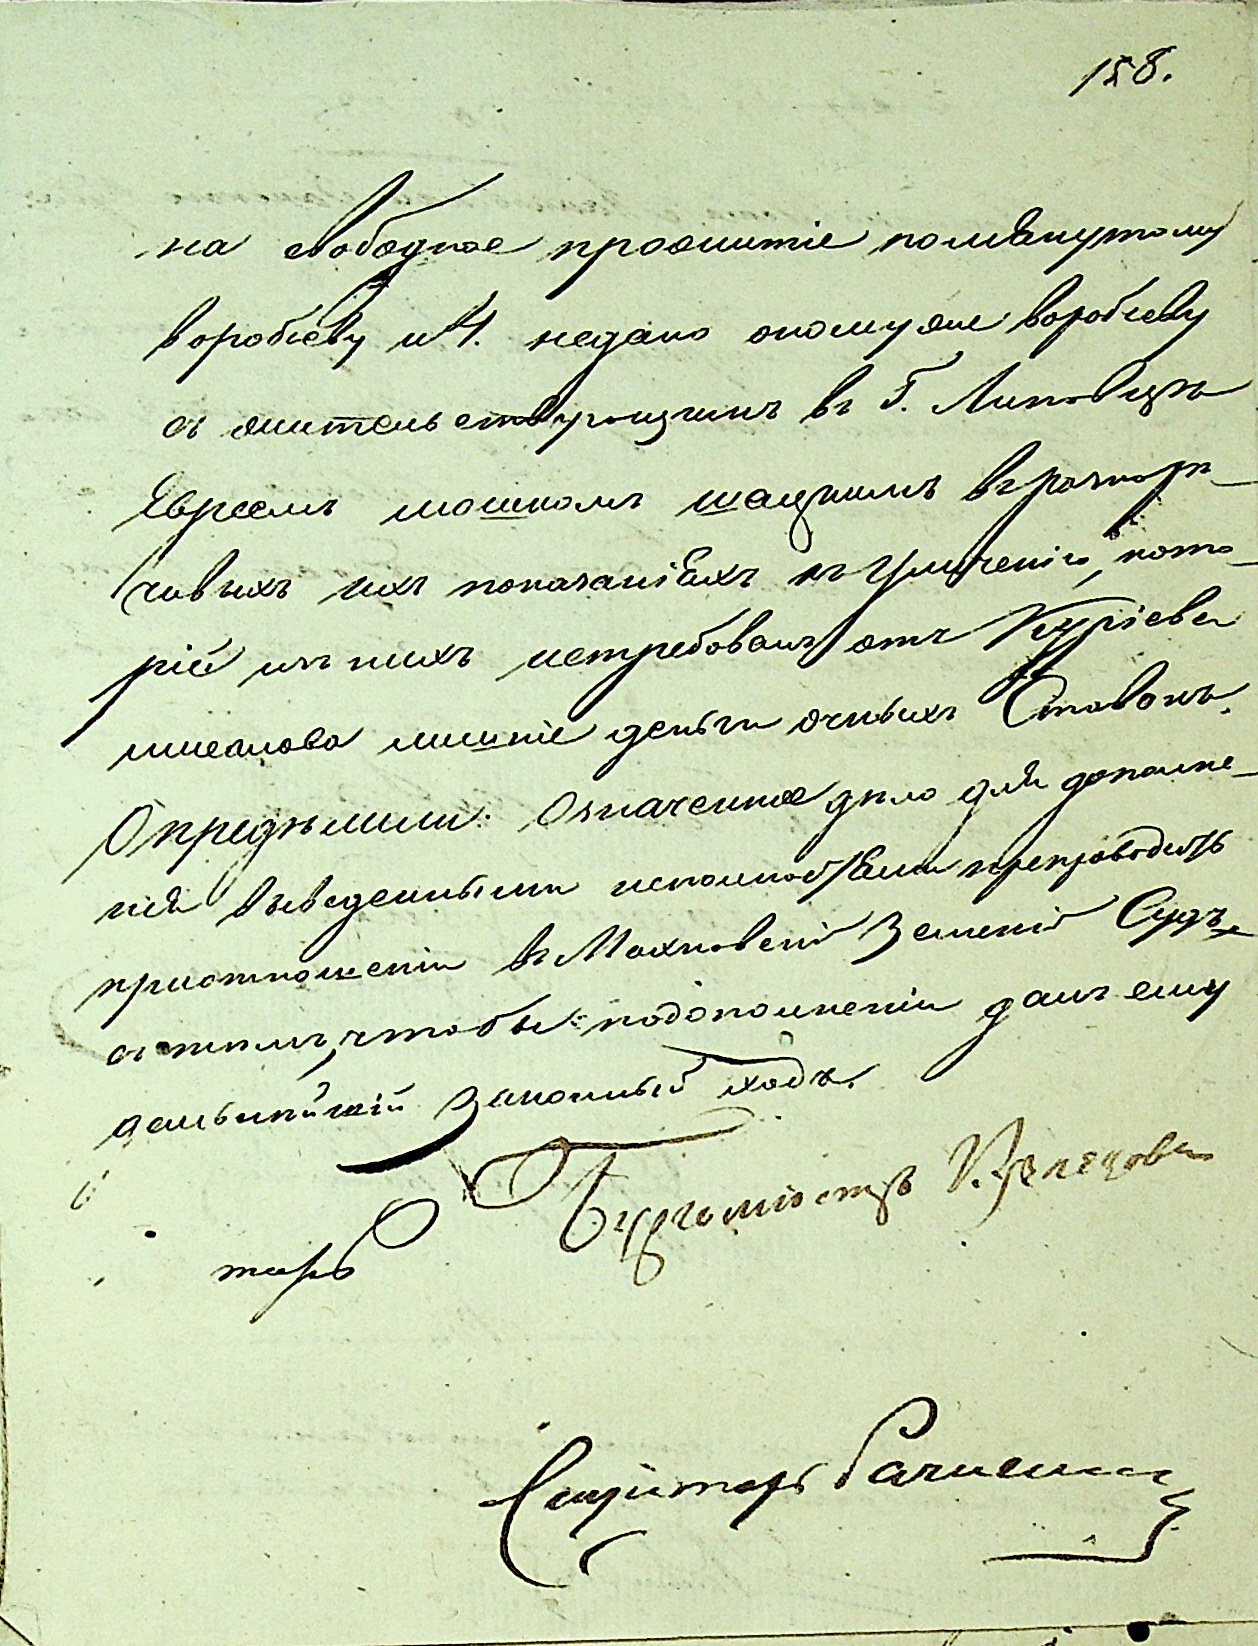 158.
на свободное прожитіе помянутому
воробіеву и 4. недано ономуже воробіеву
съ жительствующимъ въ Г. Липовцѣ
Евреемъ мошкомъ шацкимъ въ разнорѣ-
чивыхъ ихъ показаніяхъ къ уличенію, кото-
рій изъ нихъ истребовалъ отъ
лишніе деньги очныхъ Ставокъ.
Опредѣлили: Означенное дѣло для дополне-
нія выведенными неполностями препроводить
приотношеніи въ Махновскій Земскій Судъ
стѣмъ, чтобыподополненіи далъ ему
дальнѣйшій законный ходъ.
Бургомистръ
Секретарь